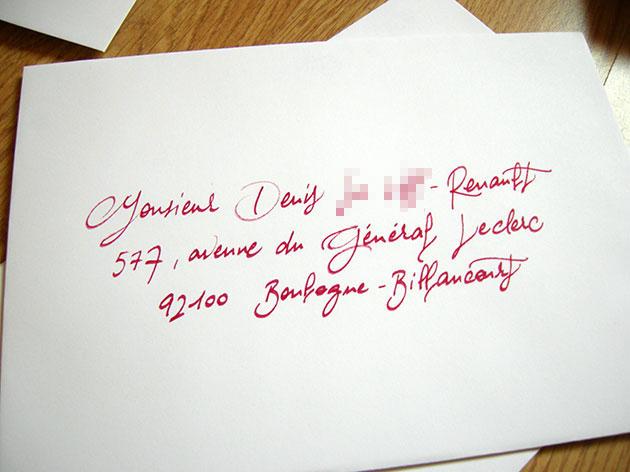 Monsieur Denis - Renault
577, avenue du Général Leclerc
92100 Boulogne-Billancourt